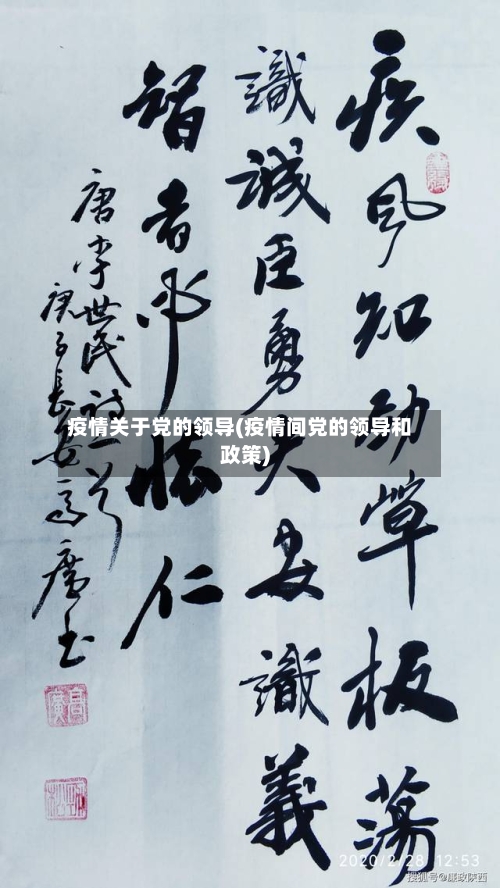 疾风知劲草板荡
識誠臣勇夫安識義
智者必懷仁
唐李世民詩一首
庚子長安高廣书
疫情关于党的领导(疫情间党的领导和
政策)
2020/2/28 12:53
搜狐号@廉政陕西